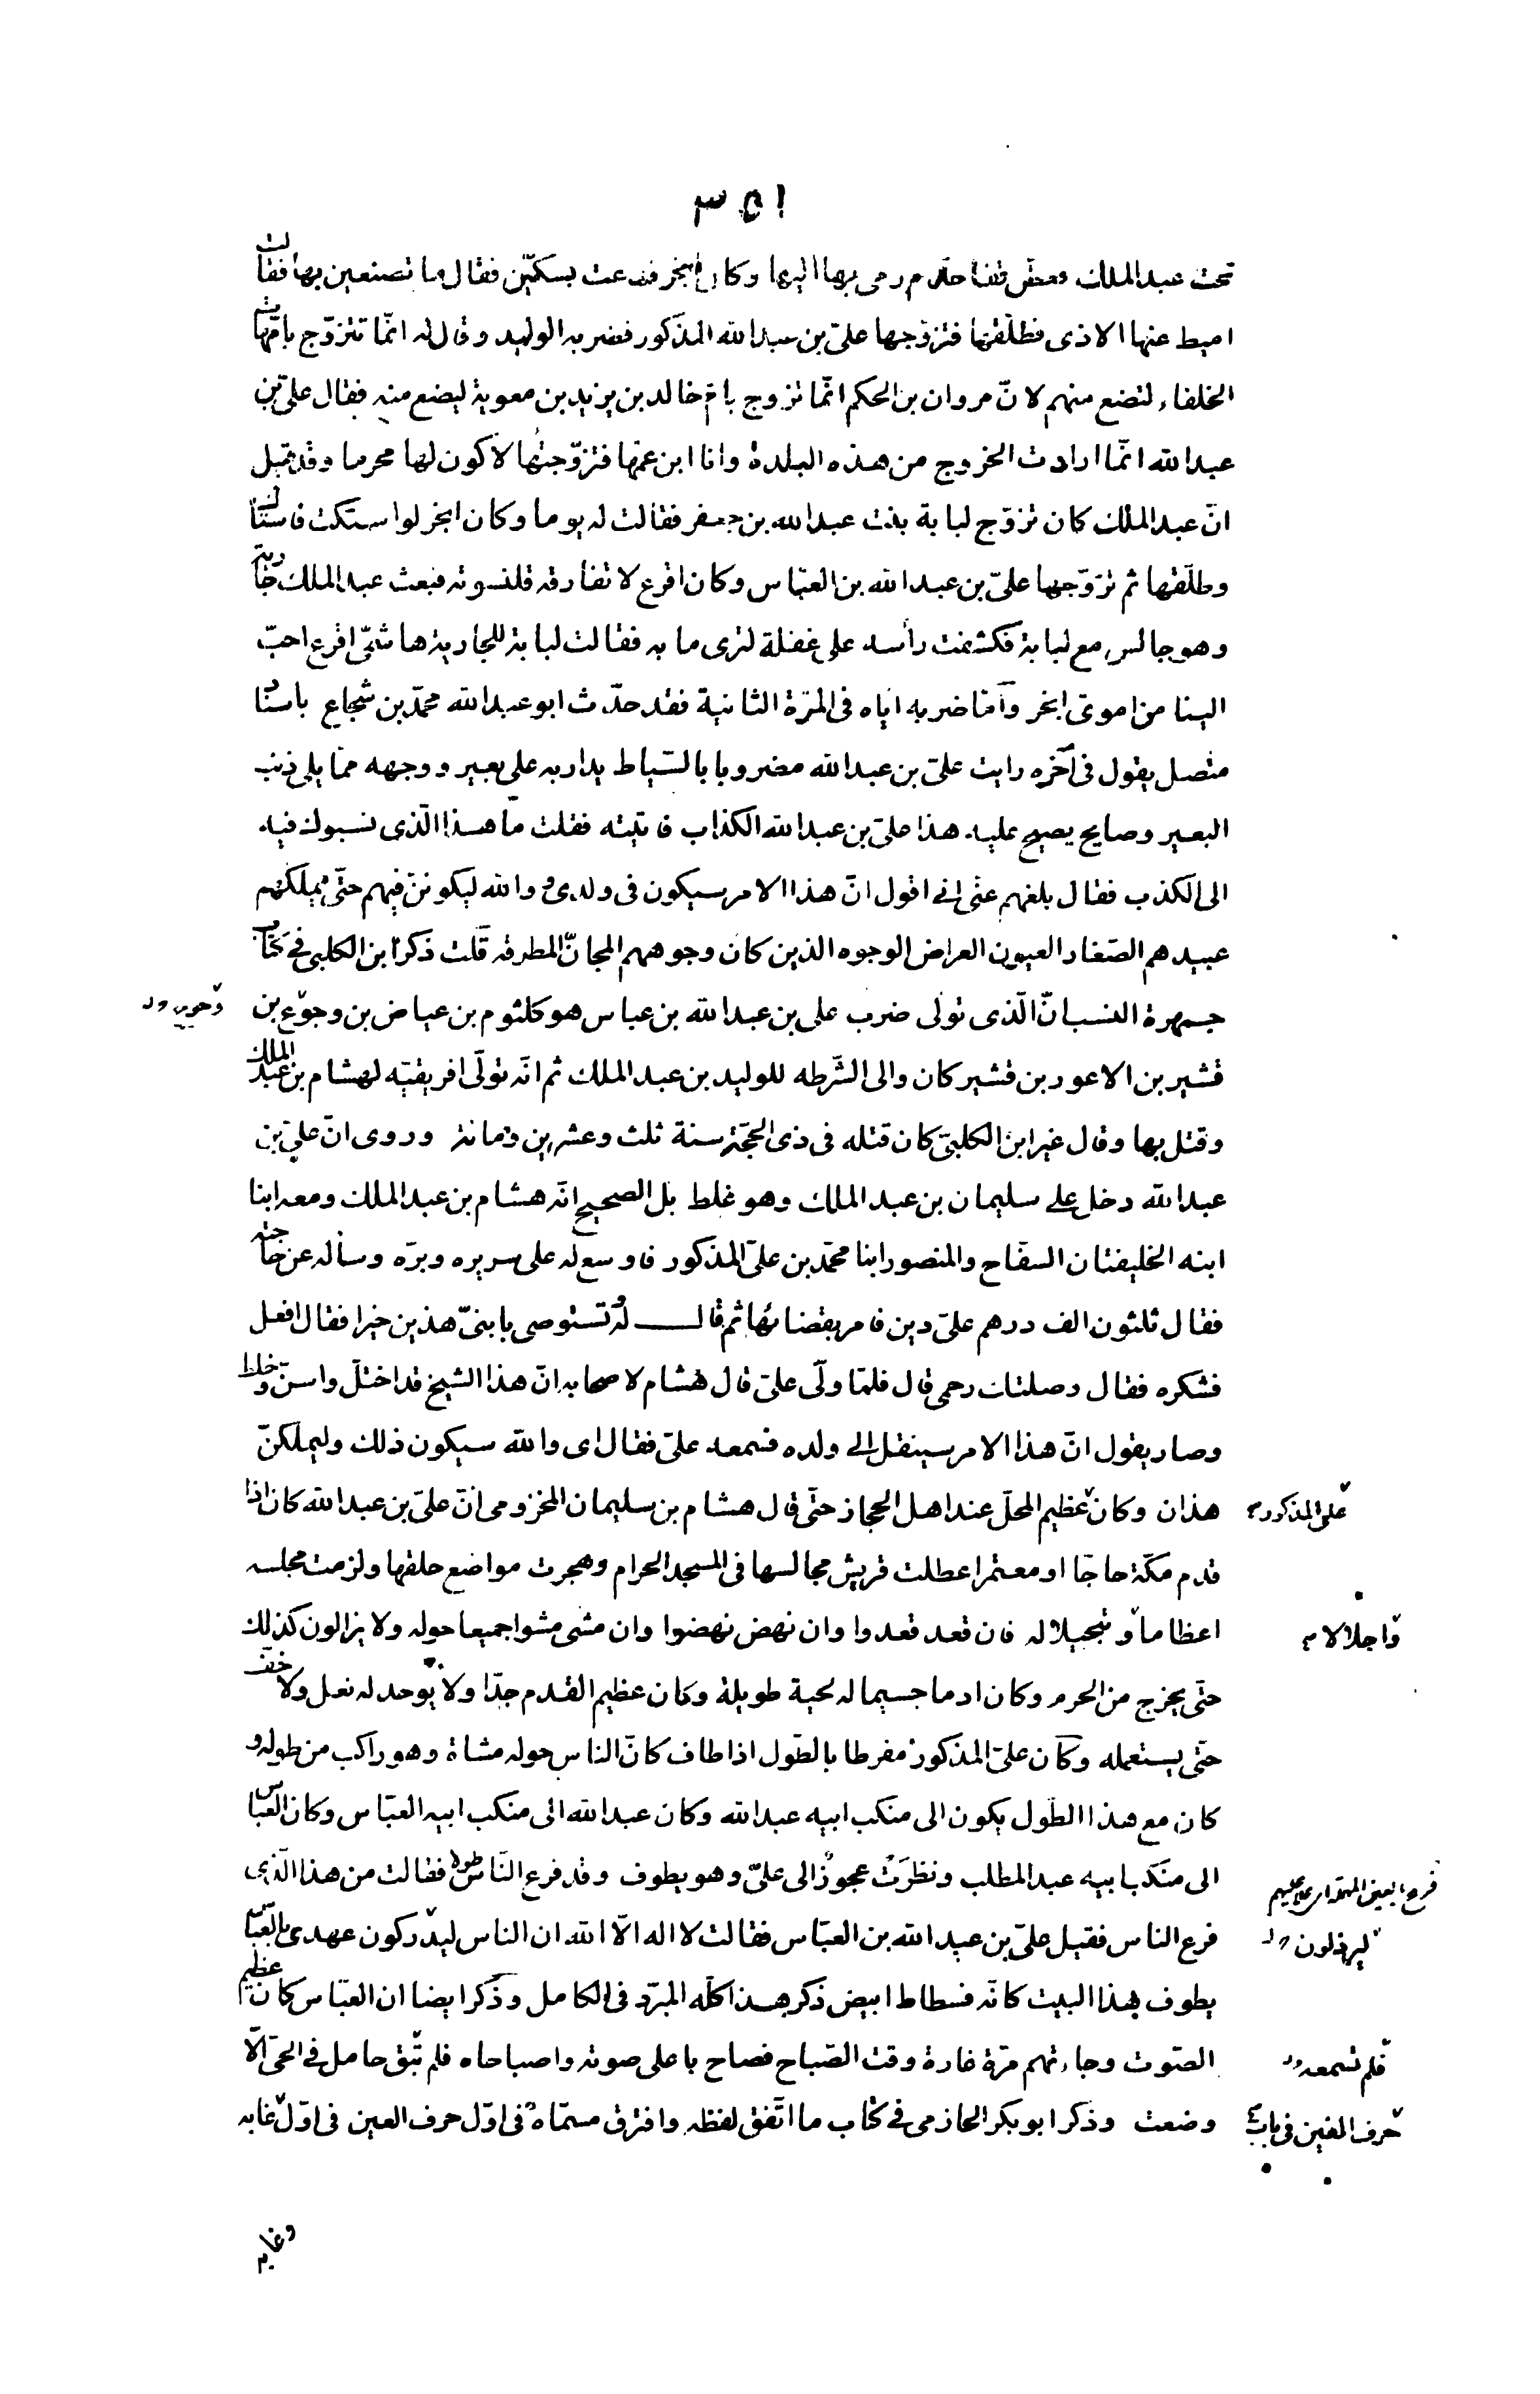 ٣٥١
تحت عبد الملك فعض تفاحة ثم رمى بها اليها وكان ابخر فدعت بسكّين فقال ما تصنعين بها فقالت
اميط عنها الاذى فطلّقها فتزوّجها علىّ بن عبد الله المذكور فضربه الوليد وقال له انّما تتزوّج بامّهات
الخلفاء لتضع منهم لانّ مروان بن الحكم انّما تزوج بامّ خالد بن يزيد بن معوية ليضع منه فقال علىّ بن
عبد الله انّما ارادت الخروج من هذه البلدة وانا ابن عمّها فتزوّجتها لاكون لها محرما وقد قيل
انّ عبد الملك كان تزوّج لبابة بنت عبد الله بن جعفر فقالت له يوما وكان ابخر لو استكت فاستاك
وطلّقها ثم تزوّجها علىّ بن عبد الله بن العبّاس وكان اقرع لا تفارقه قلنسوته فبعث عبد الملك جارية
وهو جالس مع لبابة فكشفت رأسه على غفلة لترى ما به فقالت لبابة للجارية هاشمّى اقرع احبّ
الينا من اموىّ ابخر وامّا ضربه ايّاه فى المرّة الثانية فقد حدّث ابو عبد الله محمّد بن شجاع باسناد
متّصل يقول فى آخره رايت علىّ بن عبد الله مضروبا بالسّياط يدار به على بعير ووجهه ممّا يلى ذنب
البعير وصايح يصيح عليه هذا علىّ بن عبد الله الكذاب فاتيته فقلت ما هذا الّذى نسبوك فيه
الى الكذب فقال بلغهم عنّى انى اقول انّ هذا الامر سيكون فى ولدى ووالله ليكوننّ فيهم حتّى يملكهم
عبيدهم الصّغار العيون العراض الوجوه الذين كان وجوههم المجانّ المطرقه قلت ذكر ابن الكلبى فى كتاب
جمهرة النسب انّ الّذى تولى ضرب على بن عبد الله بن عباس هو كلثوم بن عياض بن وجوّع بن
قشير بن الاعور بن قشير كان والى الشّرطه للوليد بن عبد الملك ثم انّه تولّى افريقيّه لهشام بن عبد الملك
وقتل بها وقال غير ابن الكلبىّ كان قتله فى ذى الحجّة سنة ثلث وعشرين ومائة وروى انّ علىّ بن
عبد الله دخل على سليمان بن عبد الملك وهو غلط بل الصحيح انّه هشام بن عبد الملك ومعه ابنا
ابنه الخليفتان السفّاح والمنصور ابنا محمّد بن علىّ المذكور فاوسع له على سريره وبرّه وسأله عن حاجته
فقال ثلثون الف درهم علىّ دين فامر بقضائها ثم قال له وتستوصى بابنىّ هذين خيرا فقال افعل
فشكره فقال وصلتك رحم قال فلمّا ولّى علىّ قال هشام لاصحابه انّ هذا الشيخ قد اختلّ واسنّ وخلط
وصار يقول انّ هذا الامر سينقل الى ولده فسمعه علىّ فقال اى والله سيكون ذلك وليملكنّ
هذان وكان عظيم المحلّ عند اهل الحجاز حتّى قال هشام بن سليمان المخزومى انّ علىّ بن عبد الله كان اذا
علىّ المذكور
قدم مكّة حاجّا او معتمرا عطلت قريش مجالسها فى المسجد الحرام وهجرت مواضع حلقها ولزمت مجلسه
اعظاما وتبجيلا له فان قعد قعدوا وان نهض نهضوا وان مشى مشوا جميعا حوله ولا يزالون كذلك
واجلالا
حتّى يخرج من الحرم وكان ادما جسيما له لحية طويلة وكان عظيم القدم جدّا ولا يوجد له نعل ولا خفّ
حتّى يستعمله وكان علىّ المذكور مفرطا بالطّول اذا طاف كانّ الناس حوله مشاة وهو راكب من طوله و
كان مع هذا الطول يكون الى منكب ابيه عبد الله وكان عبد الله الى منكب ابيه العبّاس وكان العبّاس
الى منكب ابيه عبد المطلب ونظرت عجوز الى علىّ وهو يطوف وقد فرع النّاس طولا فقالت من هذا الّذى
فرع بالعين المهملة اى علا عليهم
فرع الناس فقيل علىّ بن عبد الله بن العبّاس فقالت لا اله الّا الله ان الناس ليدركون عهدى بالعبّاس
ليرذلون
يطوف بهذا البيت كانّه فسطاط ابيض ذكر هذا كلّه المبرّد فى الكامل وذكر ايضا ان العبّاس كان عظيم
الصّوت وجاءتهم مرّة غارة وقت الصّباح فصاح باعلى صوته واصباحاه فلم تبق حامل فى الحىّ الّا
فلم تسمعه
وضعت وذكر ابو بكر الحازمى فى كتاب ما اتّفق لفظه وافترق مسمّاه فى اوّل حرف العين فى اوّل غابه
حرف الغين فى باب
وغابه